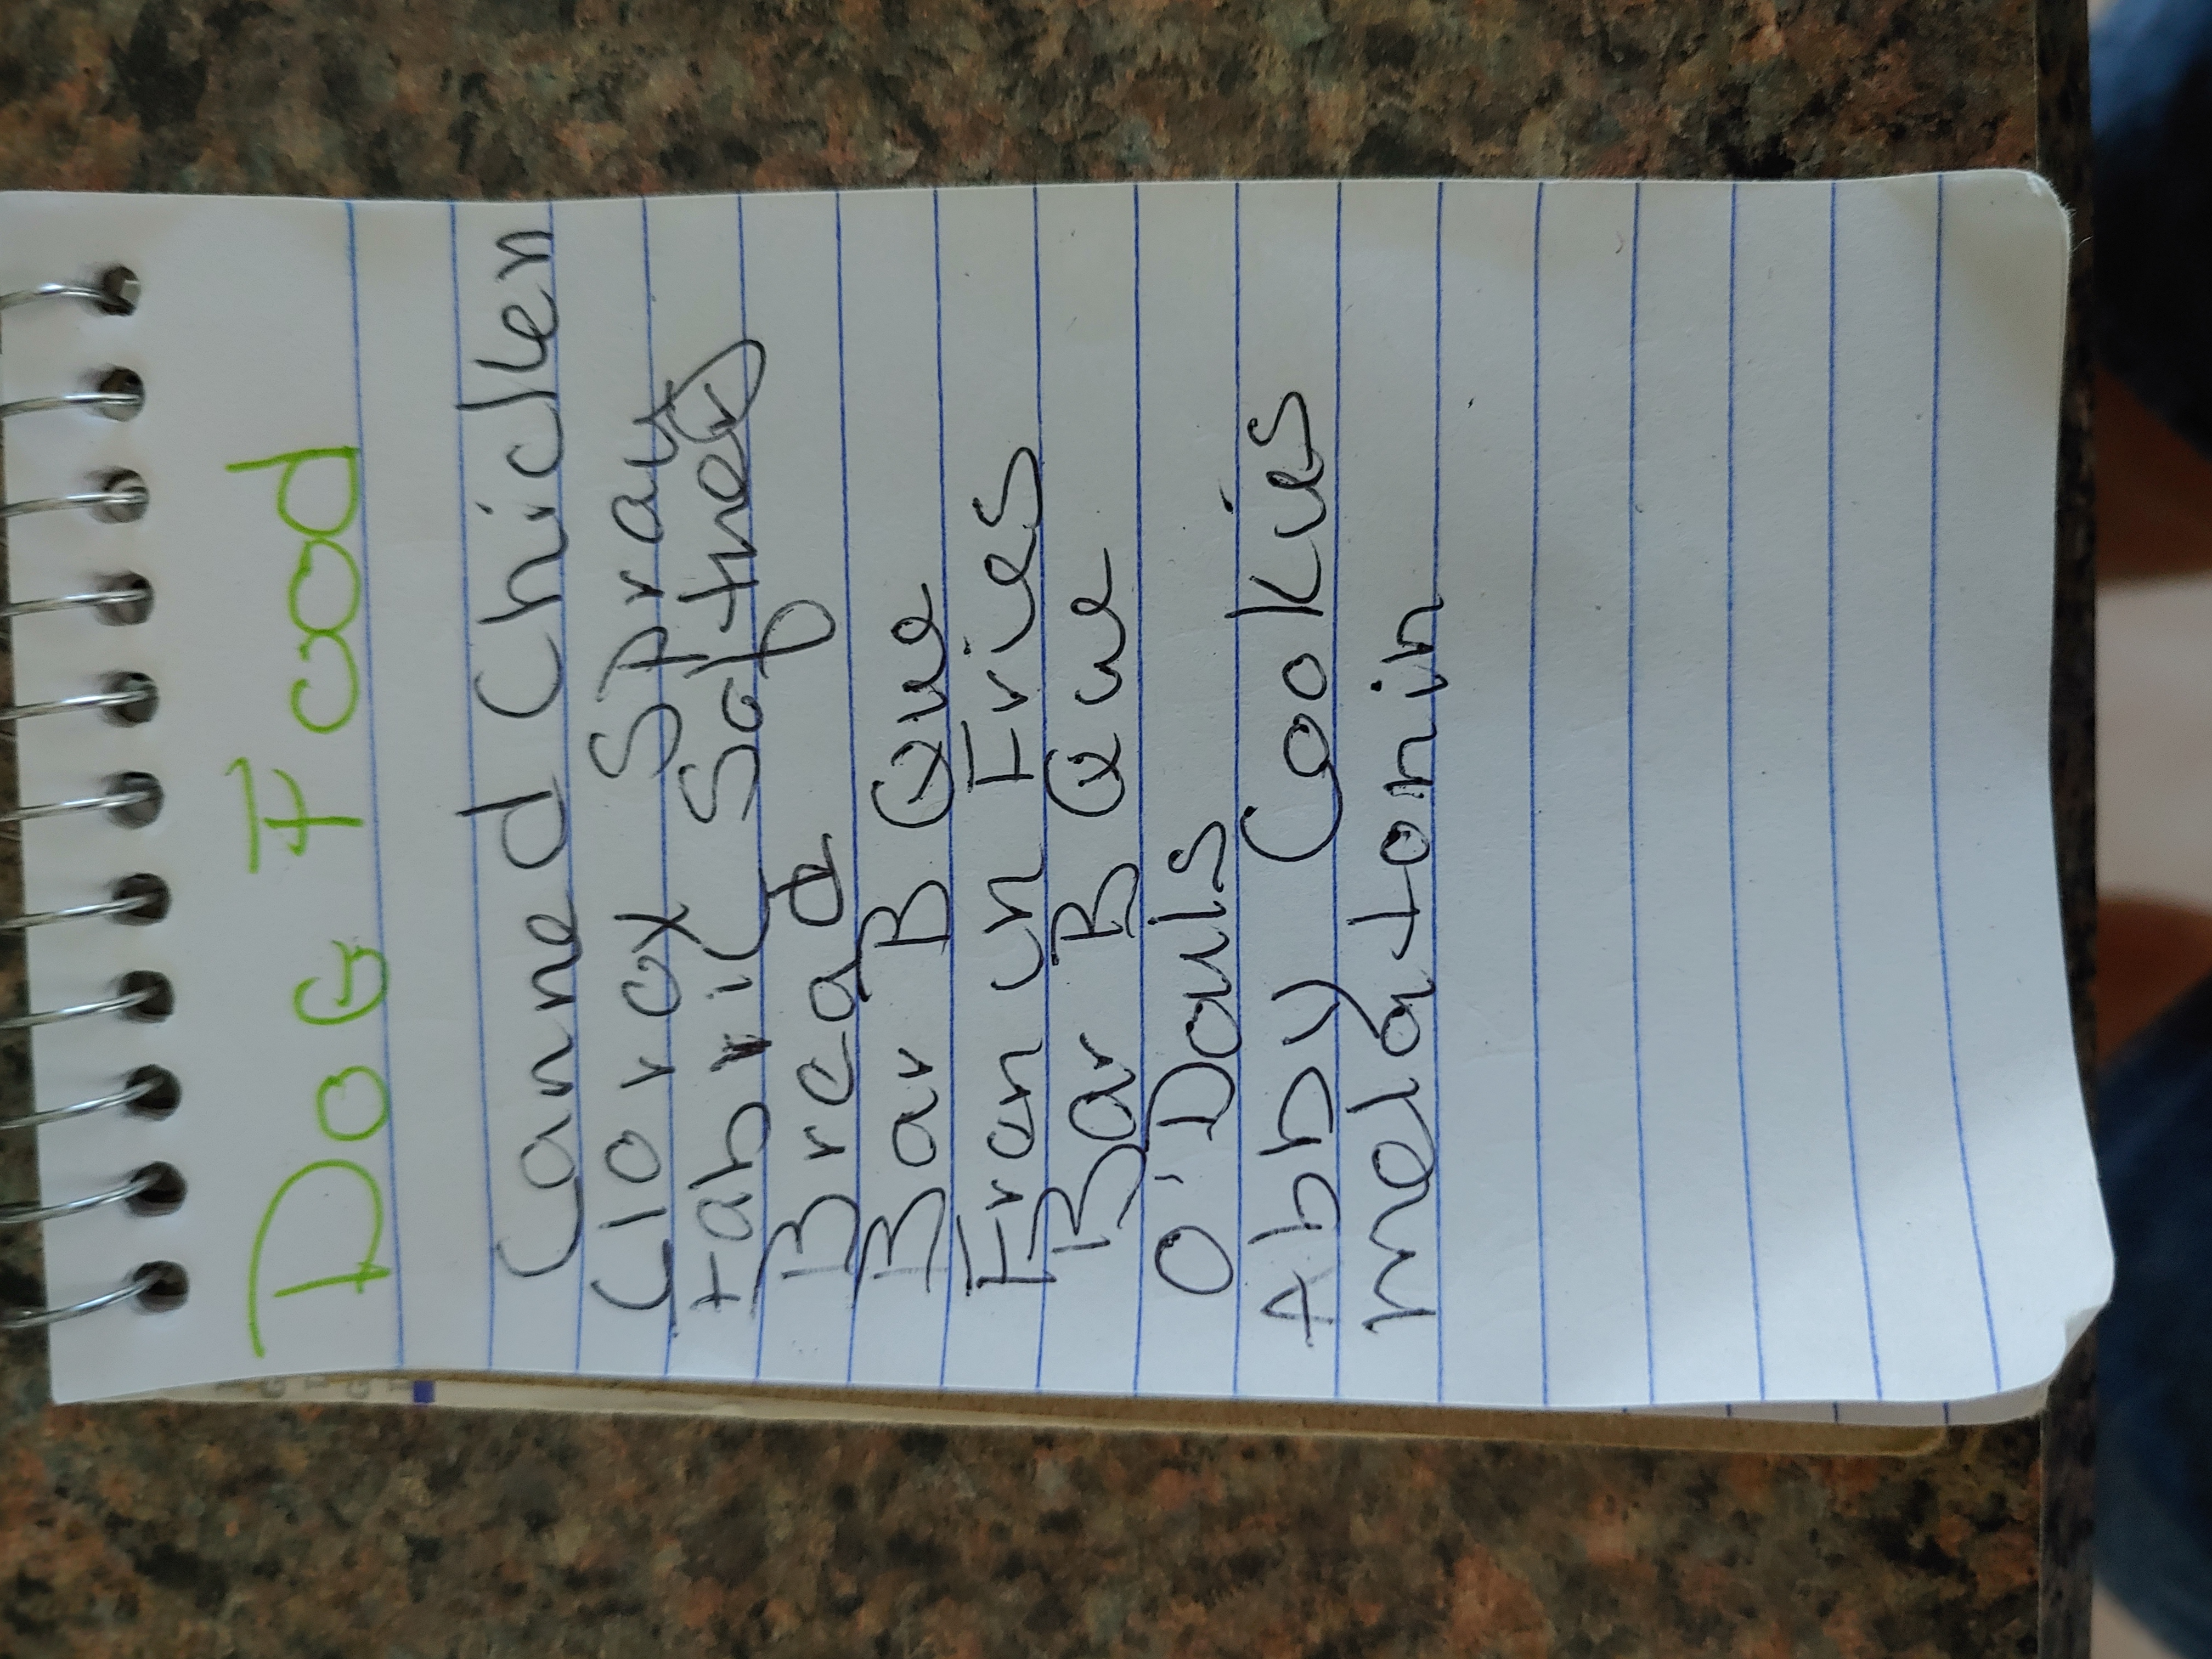 DOG Food
Canned Chicken
Clorox Spray
Fabric Softner
Bread
Bar B Que
Frenun Fries
Bar B Que
O'Douls
Abby Cookies
melatonin